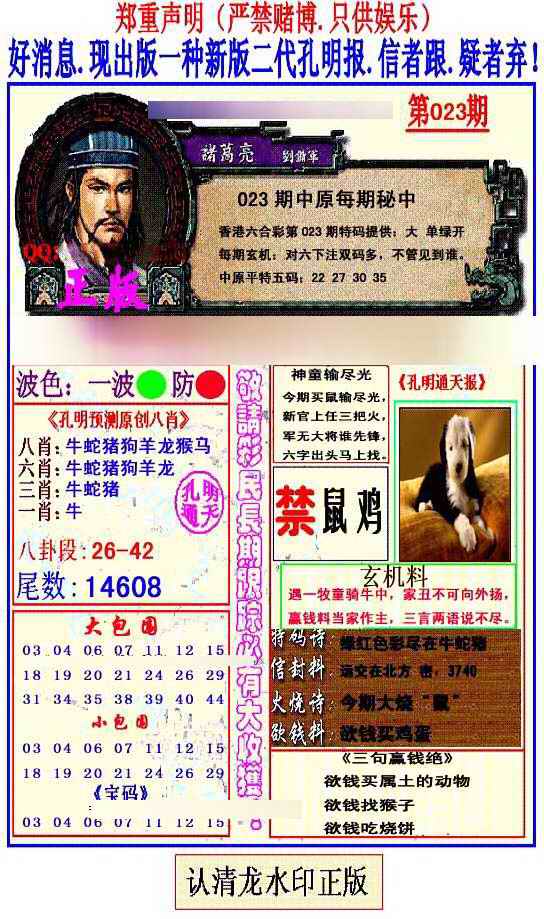 郑重声明（严禁赌博.只供娱乐）
好消息.现出版一种新版二代孔明报.信者跟.疑者弃!
第023期
諸葛亮 劉備軍
023 期中原每期秘中
香港六合彩第 023 期特码提供：大 单绿开
每期玄机：对六下注双码多，不管见到谁。
中原平特五码：22 27 30 35
QQ:
正版
波色：一波 防
《孔明预测原创八肖》
八肖：牛蛇猪狗羊龙猴马
六肖：牛蛇猪狗羊龙
三肖：牛蛇猪
一肖：牛
孔明
通天
八卦段：26-42
尾数：14608
大包围
03 04 06 07 11 12 15
18 19 20 21 24 26 29
31 34 35 38 39 40 44
小包围
03 04 06 07 11 12 15
18 19 20 21 24 26 29
《宝码》
03 04 06 07 11 12 15
敬請彩民長期跟踪必有大收獲!
神童输尽光
今期买鼠输尽光，
新官上任三把火，
军无大将谁先锋，
六字出头马上找。
《孔明通天报》
禁鼠鸡
玄机料
遇一牧童骑牛中，家丑不可向外扬，
赢钱料当家作主，三言两语说不尽。
特码诗：绿红色彩尽在牛蛇猪
信封料：运交在北方 密，3740
火烧诗：今期大烧“鼠”
欲钱料：欲钱买鸡蛋
《三句赢钱绝》
欲钱买属土的动物
欲钱找猴子
欲钱吃烧饼
认清龙水印正版